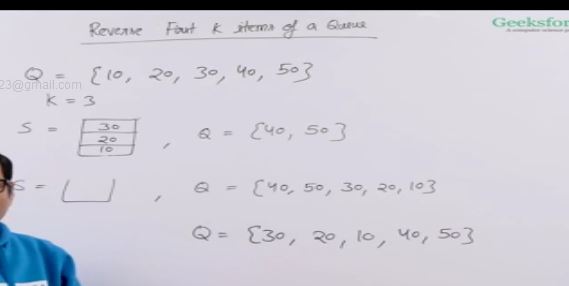 Reverse First K items of a Queue
Geeksfor
A computer science p
Q = {10, 20, 30, 40, 50}
23@gmail.com
K = 3
S = 30 20 10 , Q = {40, 50}
S = , Q = {40, 50, 30, 20, 10}
Q = {30, 20, 10, 40, 50}